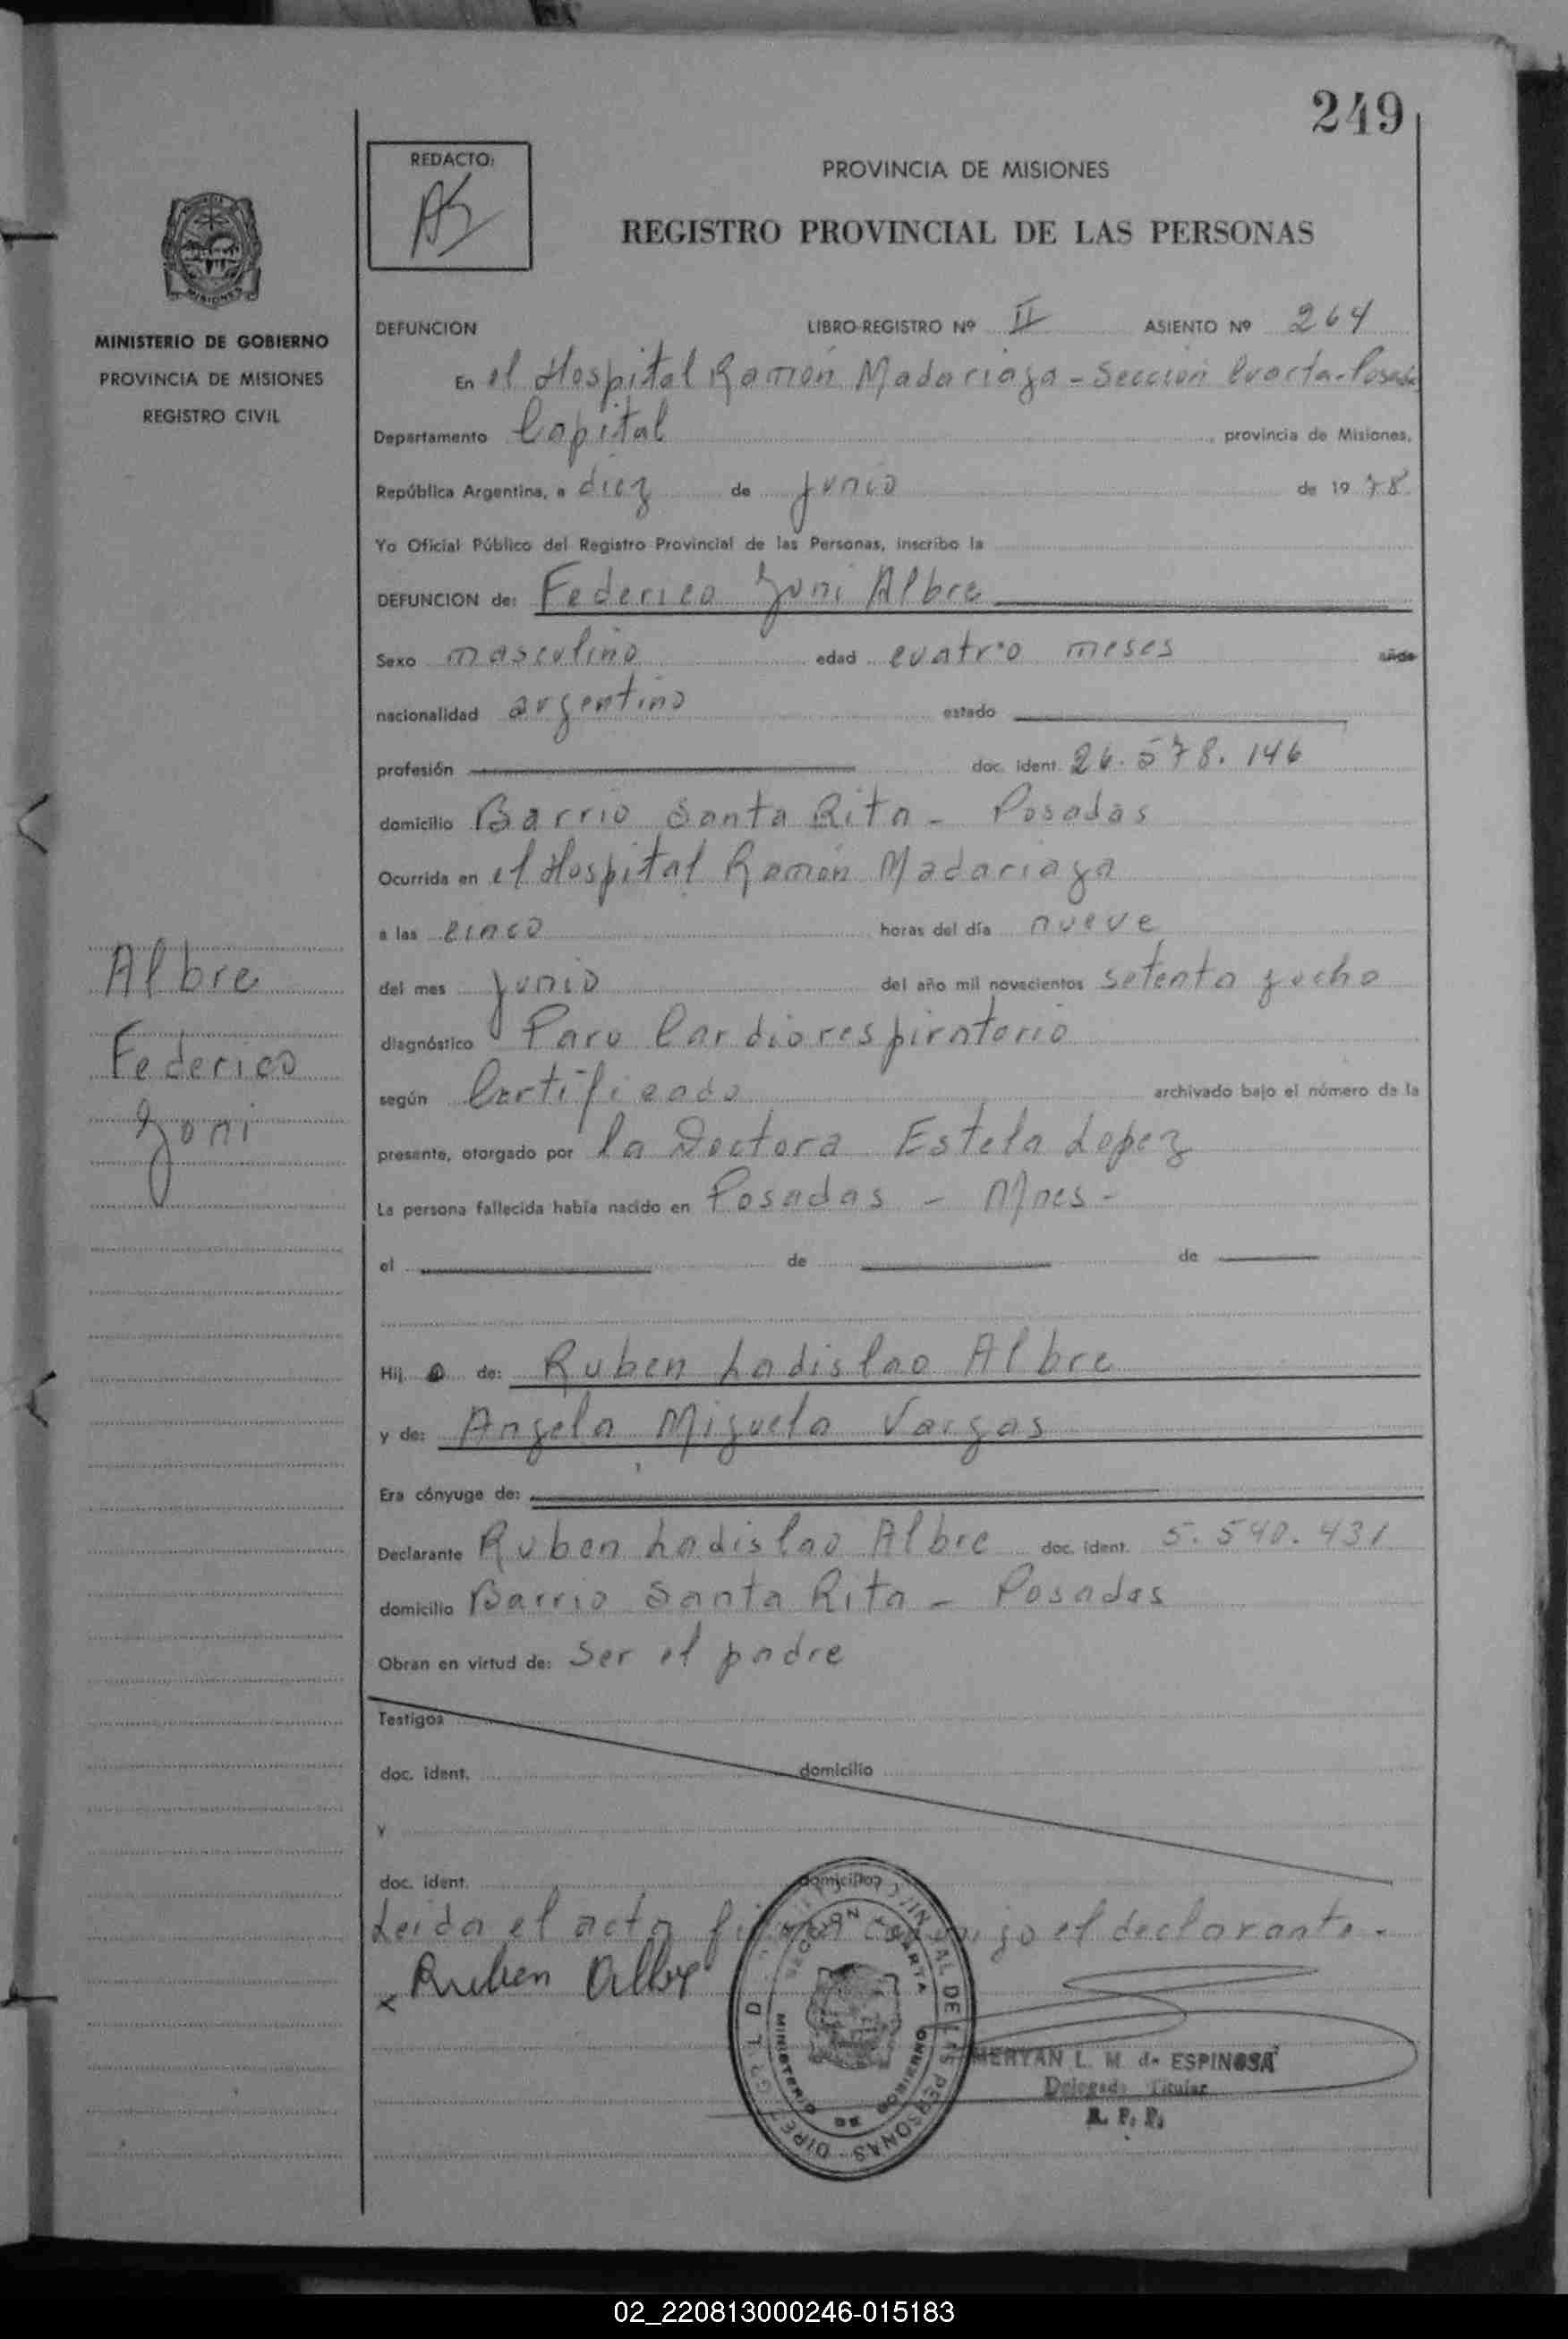 249
REDACTO:
PROVINCIA DE MISIONES
REGISTRO PROVINCIAL DE LAS PERSONAS
MISIONES
MINISTERIO DE GOBIERNO
PROVINCIA DE MISIONES
REGISTRO CIVIL
DEFUNCION LIBRO-REGISTRO Nº II ASIENTO Nº 264
En el Hospital Ramón Madariaga - Sección Cuarta - Posadas
Departamento Capital provincia de Misiones,
República Argentina, a diez de junio de 1978
Yo Oficial Público del Registro Provincial de las Personas, inscribo la
DEFUNCION de: Federico Yoni Albre
Sexo masculino edad cuatro meses años
nacionalidad argentino estado
profesión doc. ident. 26.578.146
domicilio Barrio Santa Rita - Posadas
Ocurrida en el Hospital Ramón Madariaga
a las cinco horas del día nueve
del mes junio del año mil novecientos setenta y ocho
diagnóstico Paro Cardiorespiratorio
según Certificado archivado bajo el número de la
presente, otorgado por la Doctora Estela Lopez
La persona fallecida había nacido en Posadas - Mnes -
el de de
Hij o de: Ruben Ladislao Albre
y de: Angela Miguela Vargas
Era cónyuge de:
Declarante Ruben Ladislao Albre doc. ident. 5.540.431
domicilio Barrio Santa Rita - Posadas
Obran en virtud de: Ser el padre
Testigos
doc. ident. domicilio
y
doc. ident. domicilio
Leida el acta firma conmigo el declarante -
x Ruben Albre
MERYAN L. M. de ESPINOSA
Delegada Titular
R. P. P.
SECCION CUARTA
MINISTERIO DE GOBIERNO
Albre
Federico
Yoni
02_220813000246-015183